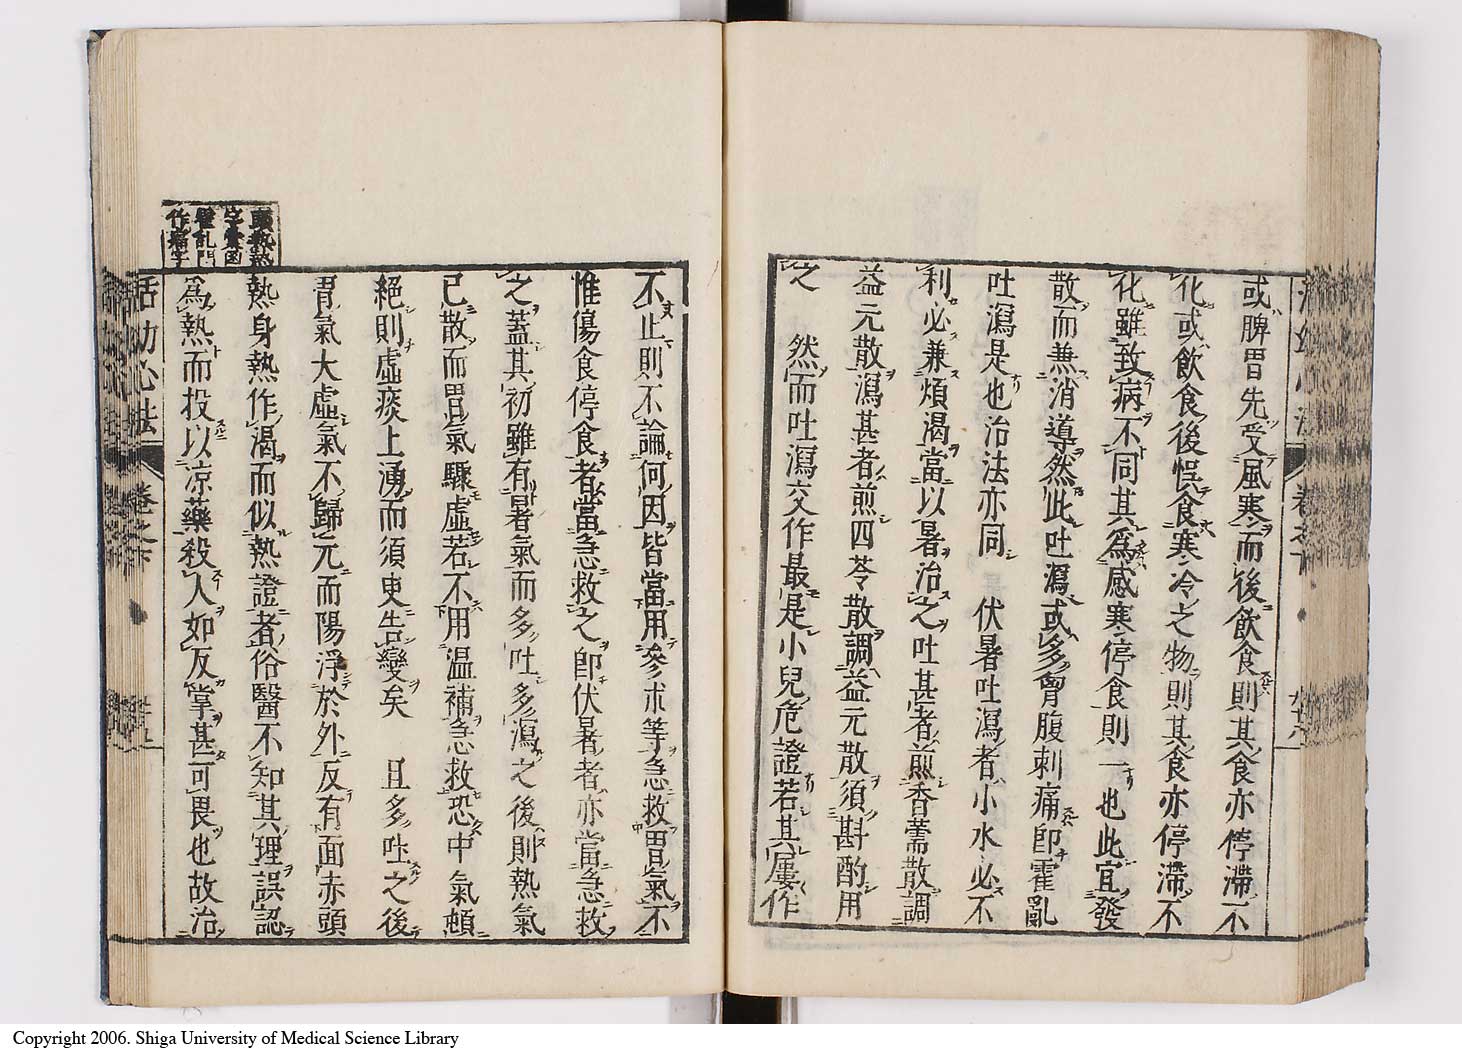 或脾胃先受風寒而後飲食則其食亦停滯不
化或飲食後悞食寒冷之物則其食亦停滯不
化雖致病不同其爲感寒停食則一也此宜發
散而兼消導然此吐瀉或多胷腹刺痛卽霍亂
吐瀉是也治法亦同　伏暑吐瀉者小水必不
利必兼煩渴當以暑治之吐甚者煎香薷散調
益元散瀉甚者煎四苓散調益元散須斟酌用
之　然而吐瀉交作最是小兒危證若其屢作
不止則不論何因皆當用參朮等急救胃氣不
惟傷食停食者當急救之卽伏暑者亦當急救
之蓋其初雖有暑氣而多吐多瀉之後則熱氣
已散而胃氣驟虛若不用温補急救恐中氣頓
絕則虛痰上湧而須臾告變矣　且多吐之後
胃氣大虛氣不歸元而陽浮於外反有面赤頭
熱身熱作渴而似熱證者俗醫不知其理誤認
爲熱而投以凉藥殺人如反掌甚可畏也故治
活幼心法
卷之下
作痛字
Copyright 2006. Shiga University of Medical Science Library